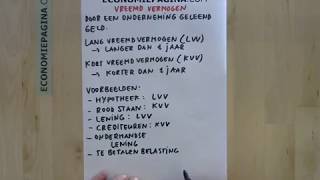 ECONOMIEPAGINA.COM
VREEMD VERMOGEN
DOOR EEN ONDERNEMING GELEEND
GELD.
LANG VREEMD VERMOGEN (LVV)
→ LANGER DAN 1 JAAR
KORT VREEMD VERMOGEN (KVV)
→ KORTER DAN 1 JAAR
VOORBEELDEN:
- HYPOTHEEK: LVV
- ROOD STAAN: KVV
- LENING: LVV
- CREDITEUREN: KVV
- ONDERHANDSE
LENING
- TE BETALEN BELASTING
ECONOMIEPAGINA.COM
ECONOMIEPAGINA.COM